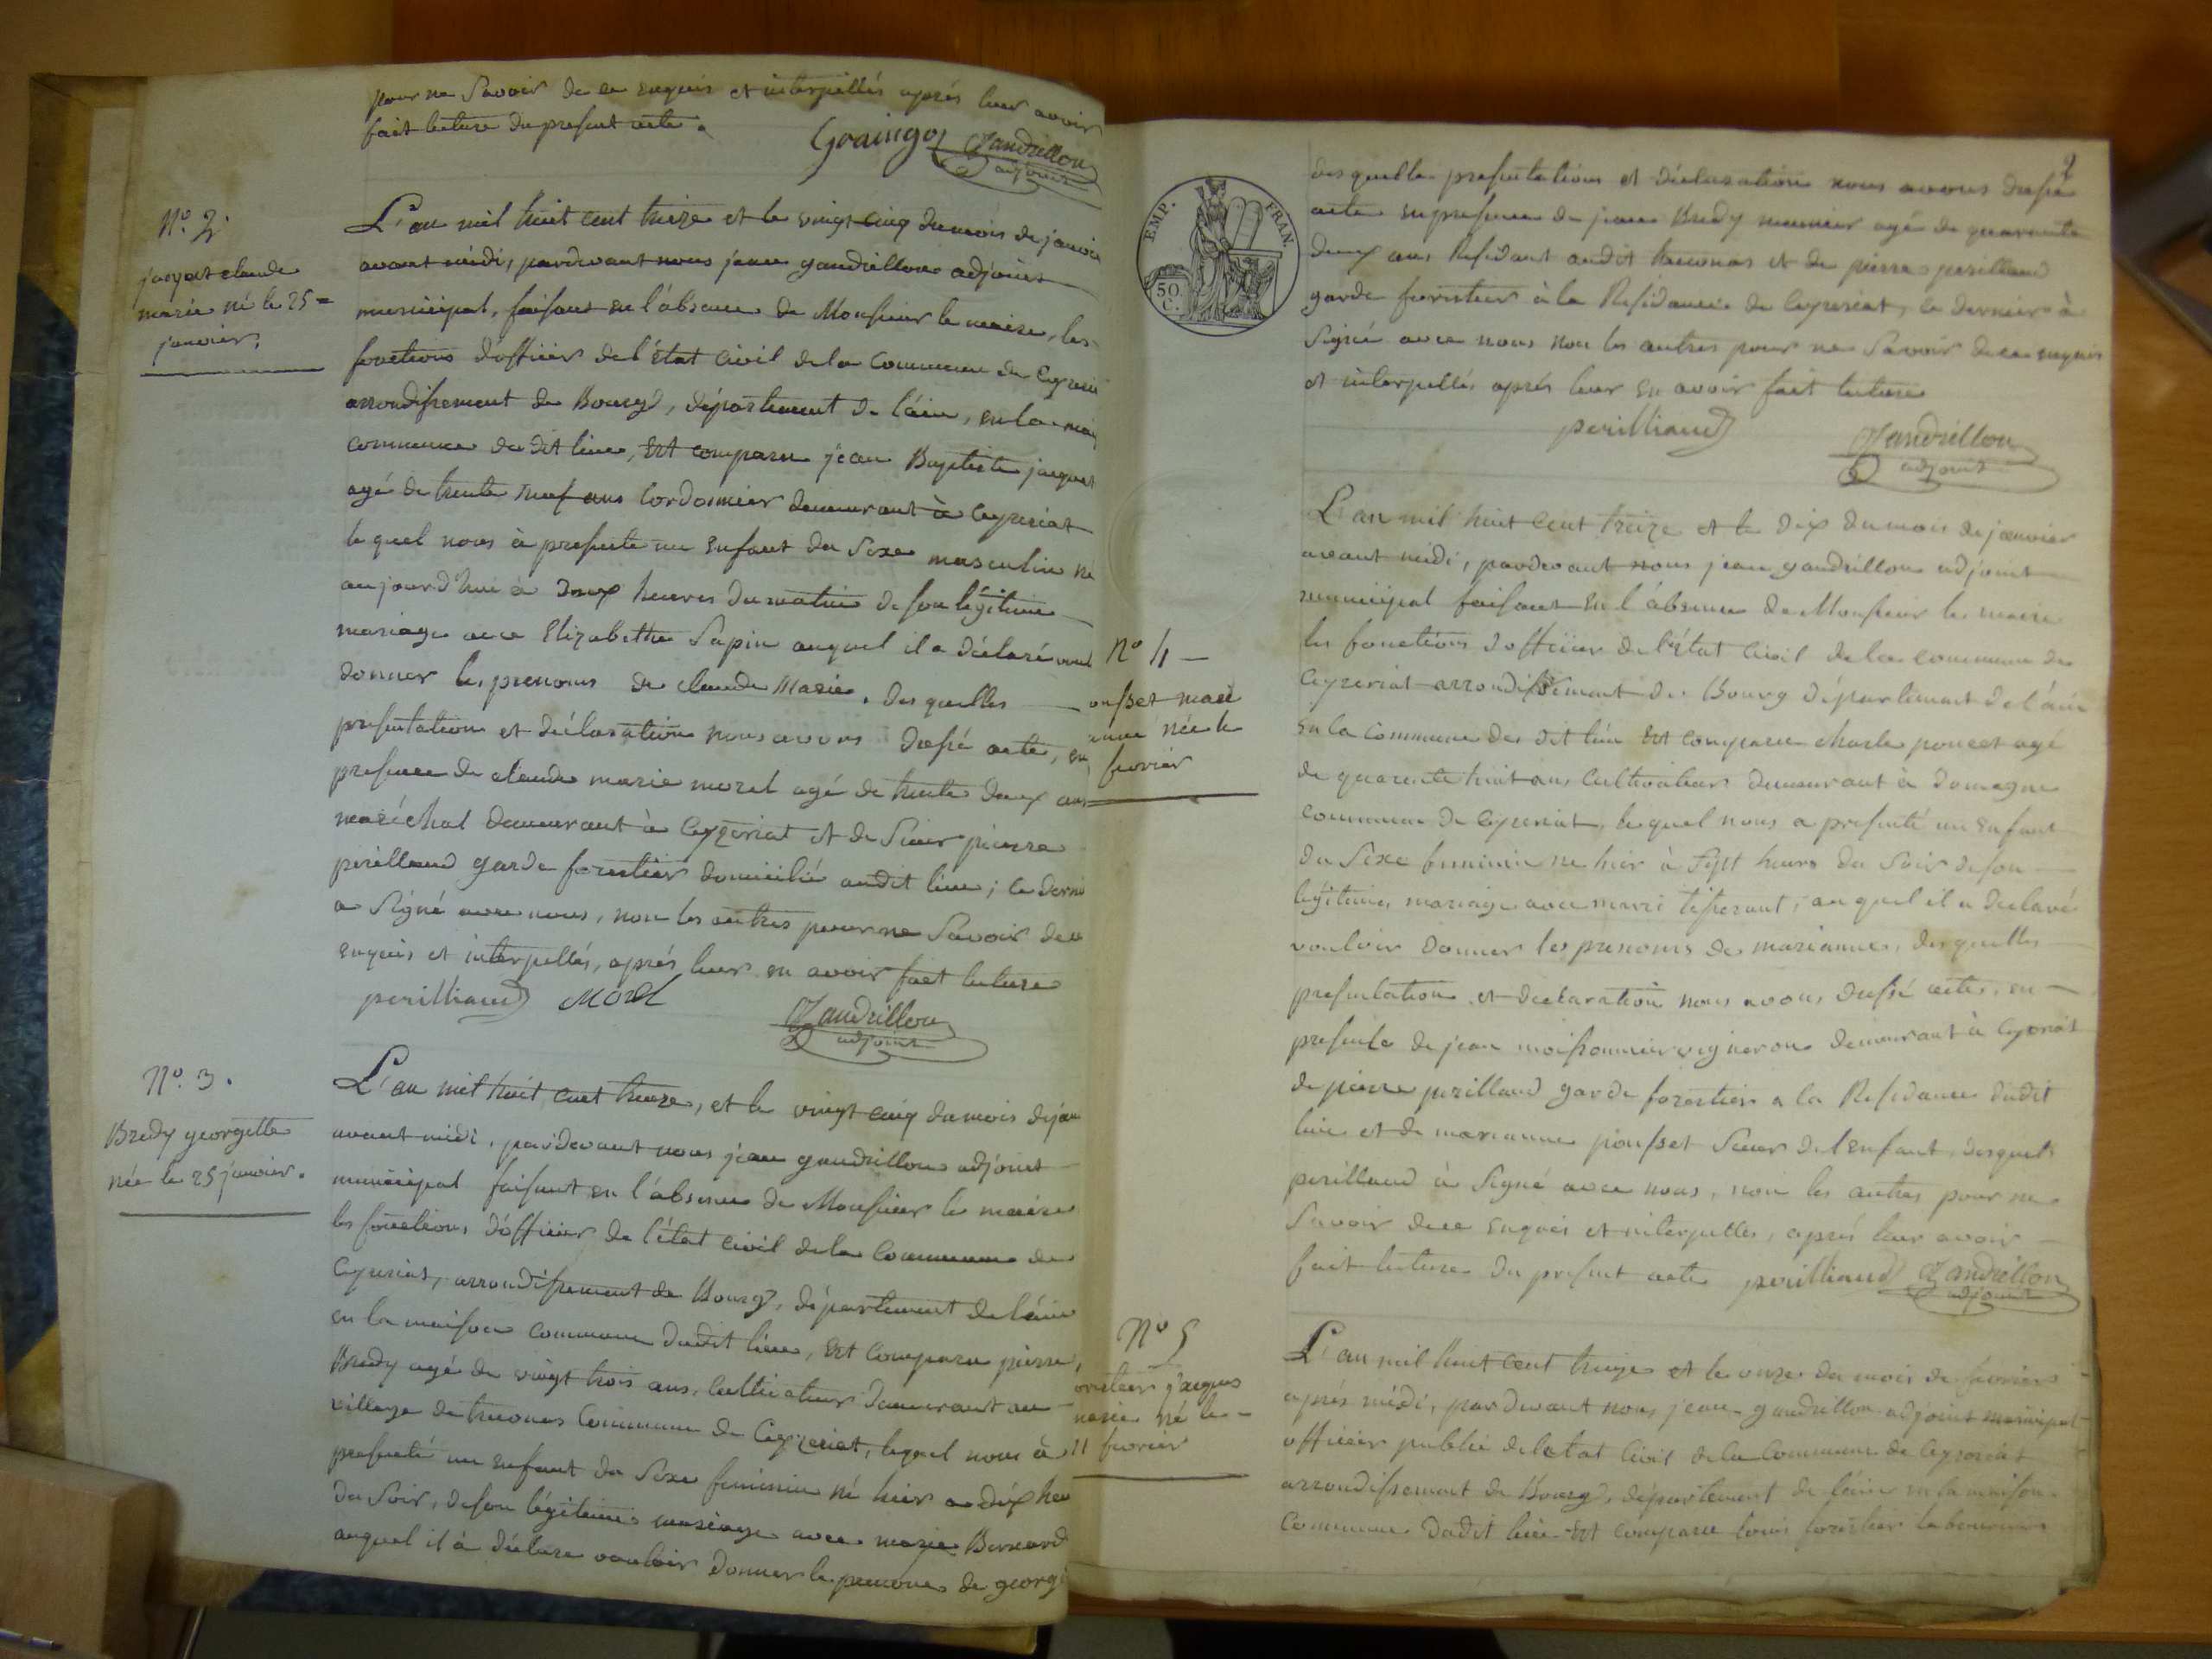 pour ne Savoir de ce enquis et interpellés après leur avoir
fait lecture du present acte.
Graingo Gandrillon
adjoint
N.o 2.
jacquet claude
marie né le 25 =
janvier.
L'an mil huit cent treize et le vingt cinq du mois de janvier
avant midi, pardevant nous jean gandrillon adjoint
municipal, faisant en l'absence de Monsieur le maire, les
fonctions d'officier de l'état civil de la Commune de Ceyzeriat
arrondissement de Bourg, département de l'ain, en la
commune du dit lieu, Est comparu jean Baptiste jacquet
agé de trente neuf ans Cordonnier demeurant à Ceyzeriat
lequel nous à presenté un Enfant du Sexe masculin né
aujourd'hui à Deux heures du matin de son légitime
mariage avec Elizabethe Sapin auquel il a déclaré
donner les prenoms de claude Marie. des quelles
presentation et déclaration nous avons dressé acte, en
presence de claude marie morel agé de trente deux ans
maréchal demeurant à Ceyzeriat et de Sieur pierre
perilland garde forestier domicilié audit lieu; ce
a Signé avec nous, non les autres pour ne Savoir de
enquis et interpellés, après leur en avoir fait lecture
perilliaud Morel
Gandrillon
adjoint
N.o 3.
Bredy georgette
née le 25 janvier.
L'an mil huit cent treize, et le vingt cinq du mois de jan
avant midi, pardevant nous jean gandrillon adjoint
municipal faisant en l'absence de Monsieur le maire
les fonctions d'officier de l'état civil de la Commune de
Ceyzeriat, arrondissement de Bourg, département de l'ain
en la maison commune dudit lieu, Est Comparu pierre
Bredy agé de vingt trois ans, Cultivateur demeurant au
village de Commune de Ceyzeriat, lequel nous à
presenté un enfant du Sexe feminin né hier a dix heu
du Soir, de son légitime mariage avec marie Bernard
auquel il à déclaré vouloir donner le prenoms de georg
2
EMP. FRAN.
50
C.
des quelles presentations et déclaration nous avons dressé
acte en presence de jean Bredy meunier agé de quarante
deux ans Residant audit et de pierre perilland
garde forestier à la Residance de Ceyzeriat, ce dernier à
Signé avec nous non les autres pour ne Savoir de ce enquis
et interpellés après leur en avoir fait lecture
perilliaud Gandrillon
adjoint
N.o 4 —
ousset marie
anne née le
fevrier
L'an mil huit Cent treize et le dix du mois de janvier
avant midi, pardevant nous jean gandrillon adjoint
municipal faisant en l'absence de Monsieur le maire
les fonctions d'officier de l'état Civil de la commune de
Ceyzeriat arrondissement de Bourg département de l'ain
en la Commune du dit lieu Est comparu charle agé
de quarente huit ans Cultivateur demeurant à Domagne
commune de Ceyzeriat, lequel nous a presenté un Enfant
du Sexe feminin né hier à Sept heures du Soir de son
légitime mariage avec marie tisserant, auquel il a déclaré
vouloir donner les prenoms de marianne, des quelles
presentation et declaration nous avons dressé acte, en
presence de jean moissonnier vigneron demeurant à Ceyzeriat
de pierre perilland garde forestier a la Residance dudit
lieu et de marianne pousset Soeur de l'enfant, desquels
perilland à Signé avec nous, non les autres pour ne
Savoir de ce enquis et interpellés, après leur avoir
fait lecture du present acte perilliaud Gandrillon
adjoint
N.o 5
orestier jacques
marie né le
11 fevrier
L'an mil huit Cent treize et le onze du mois de fevrier
après midi, pardevant nous jean gandrillon adjoint municipal
officier public de l'état Civil de la Commune de Ceyzeriat
arrondissement de Bourg, département de l'ain en la maison
Commune dudit lieu Est comparu louis forestier laboureur